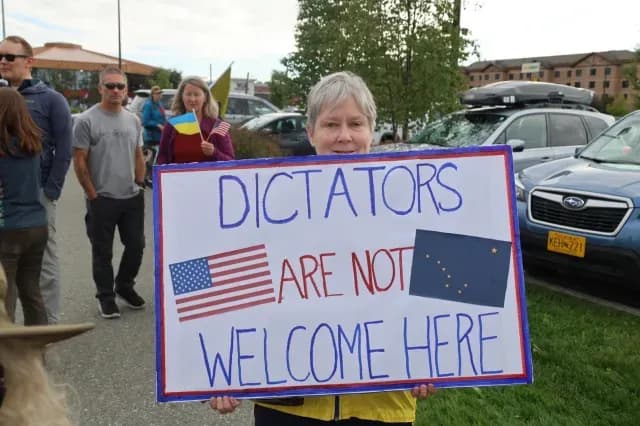 DICTATORS
ARE NOT
WELCOME HERE